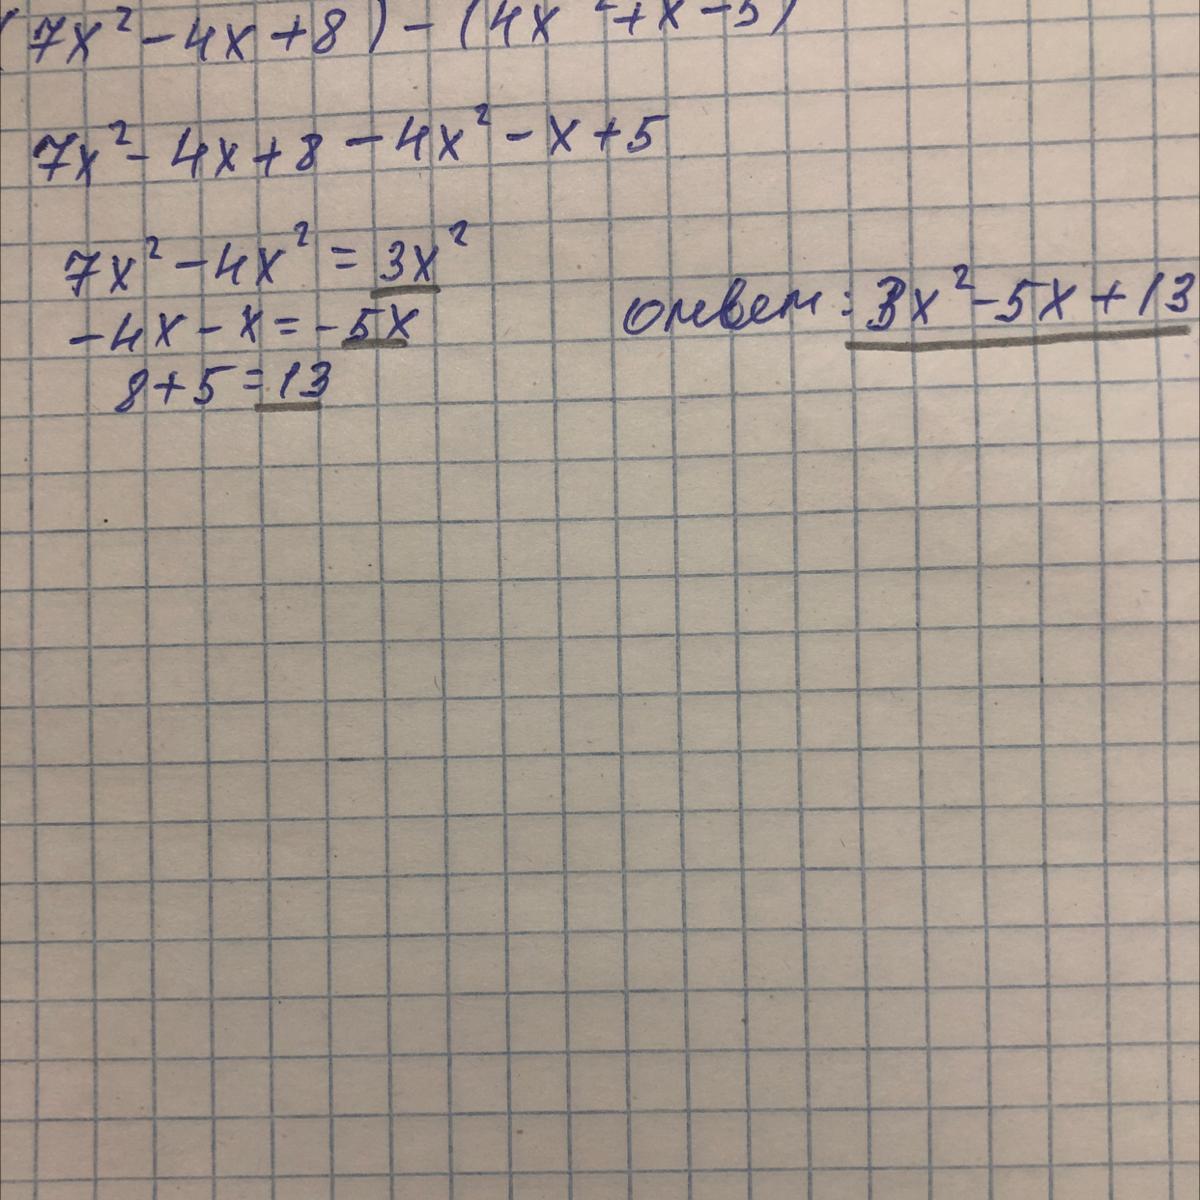 (7x² - 4x + 8) - (4x² + x - 5)
7x² - 4x + 8 - 4x² - x + 5
7x² - 4x² = 3x²
- 4x - x = - 5x
8 + 5 = 13
ответ: 3x² - 5x + 13